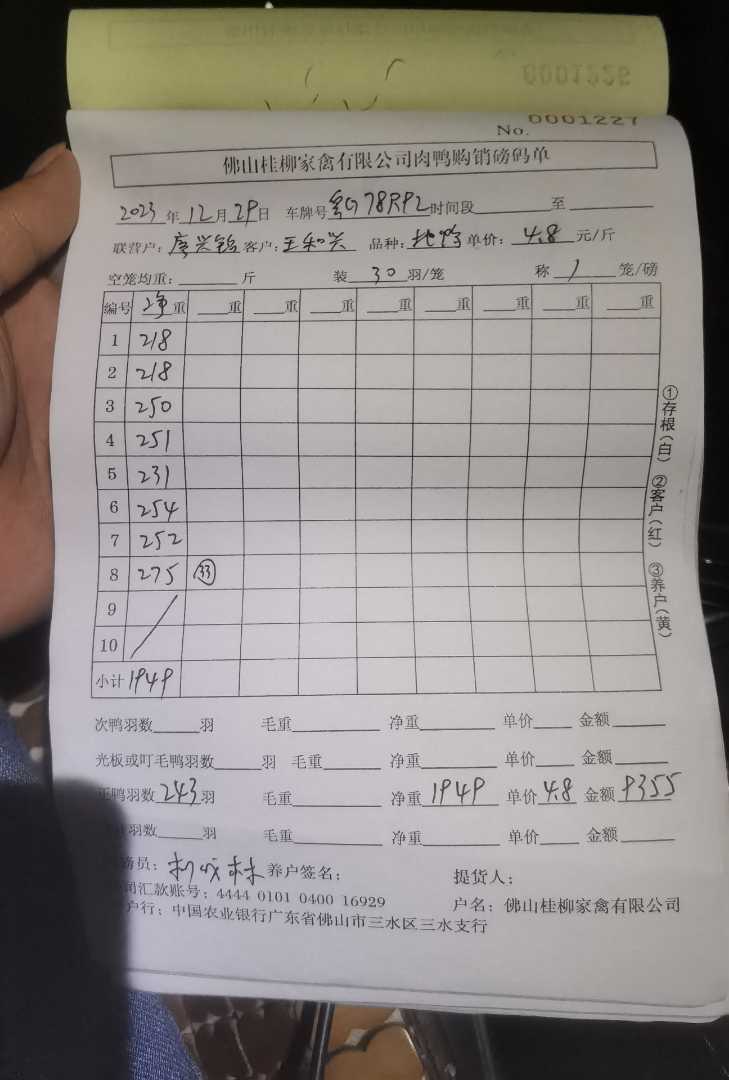 0001226
No. 0001227
佛山桂柳家禽有限公司肉鸭购销磅码单
2023年12月29日 车牌号粤G78RP2时间段 至
联营户: 客户:王和兴 品种: 单价:4.8元/斤
空笼均重: 斤 装30羽/笼 称1笼/磅
编号 净重 重 重 重 重 重 重 重 重
1 218
2 218
3 250
4 251
5 231
6 254
7 252
8 275 33
9
10
小计 1949
①存根(白) ②客户(红) ③养户(黄)
次鸭羽数 羽 毛重 净重 单价 金额
光板或叮毛鸭羽数 羽 毛重 净重 单价 金额
正鸭羽数243羽 毛重 净重1949 单价4.8 金额9355
羽数 羽 毛重 净重 单价 金额
员: 养户签名: 提货人:
汇款账号:4444 0101 0400 16929 户名:佛山桂柳家禽有限公司
户行:中国农业银行广东省佛山市三水区三水支行